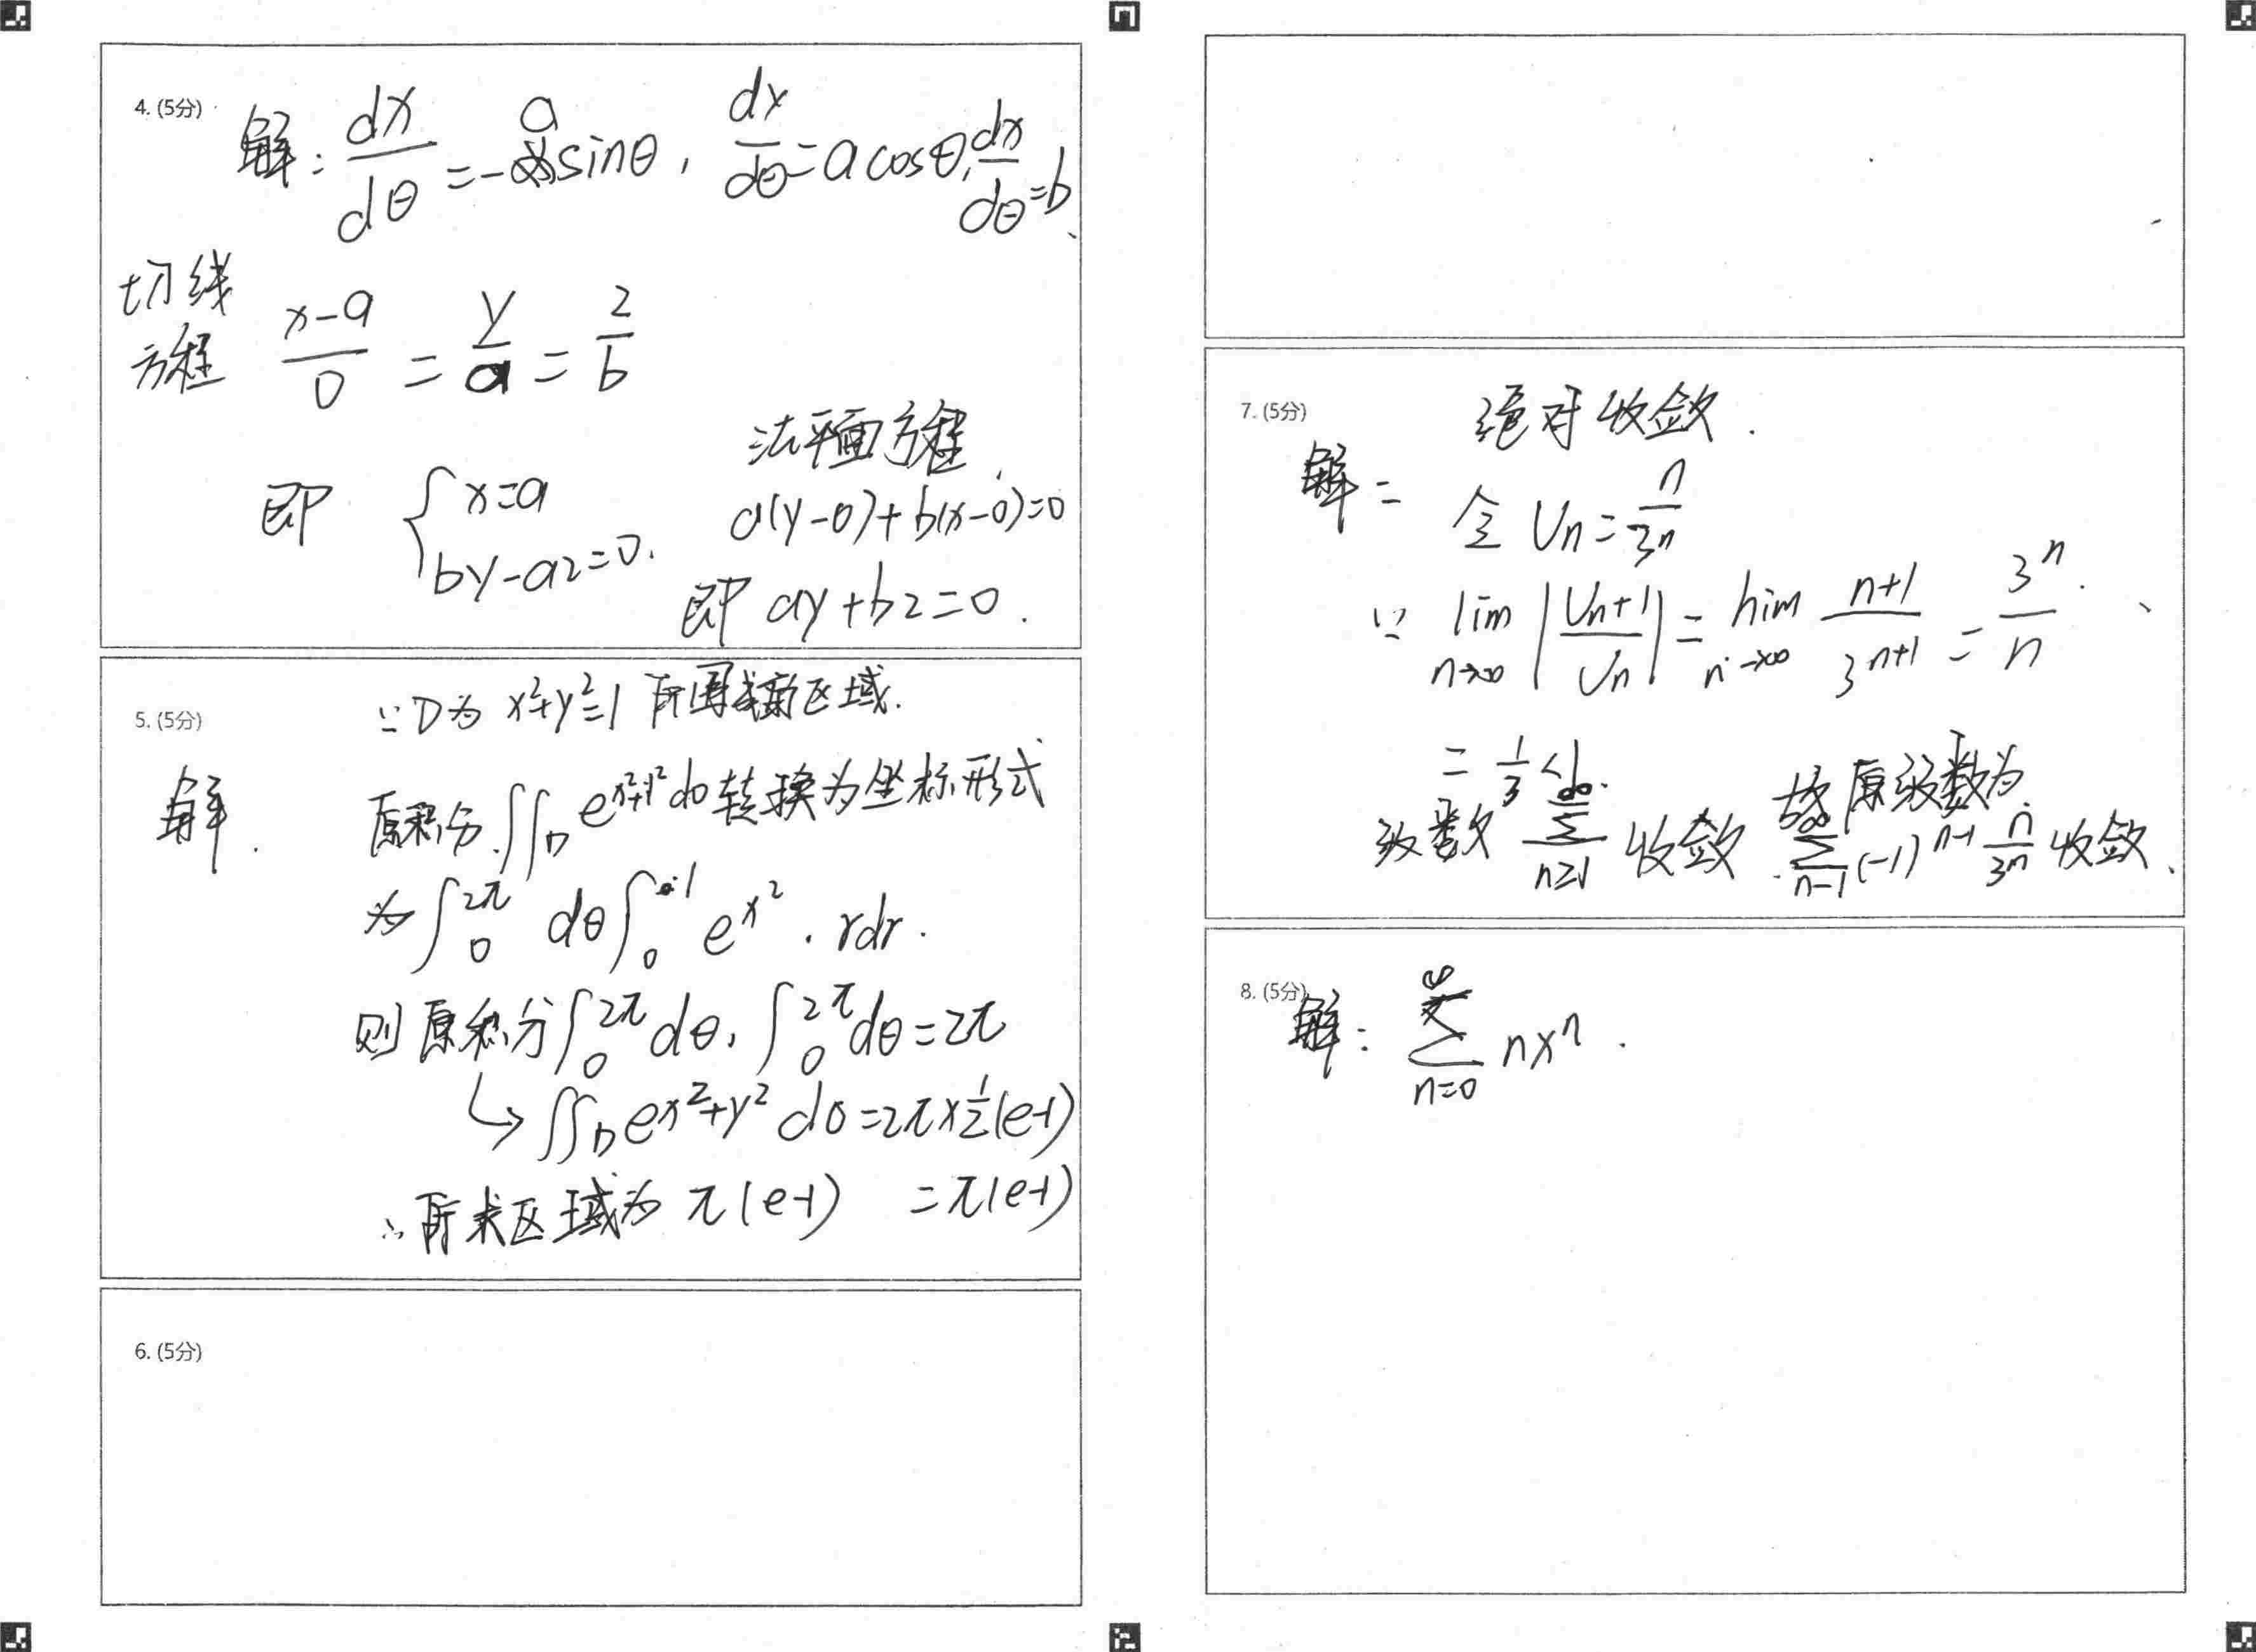 4. (5分)
解: dx/dθ = -a sinθ, dy/dθ = a cosθ, dx/dθ = b、
切线
方程 (x-a)/0 = y/a = z/b
法平面方程
即 { x=a
by-az=0.
a(y-0)+b(x-0)=0
即 ay+bz=0.
5. (5分)
∵D为 x²+y²=1 所围 区域.
解.
原积分 ∬D e^(x²+y²) dσ 转换为坐标形式
为 ∫₀^2π dθ ∫₀^1 e^x² · rdr.
则原积分 ∫₀^2π dθ, ∫₀^2π dθ = 2π
↳ ∬D ex²+y² dσ = 2π×½(e-1)
∴所求区域为 π(e-1) = π(e-1)
6. (5分)
7. (5分)
绝对收敛.
解= 令 Un = n/3n
∵ lim n→∞ |Un+1/Un| = lim n→∞ (n+1)/3^(n+1) = 3^n/n.
= 1/3 <1.
级数 ∞∑n=1 收敛 故原级数为
∞∑n-1 (-1)^(n-1) n/3^n 收敛、
8. (5分)
解: ∞∑n=0 nx^n.